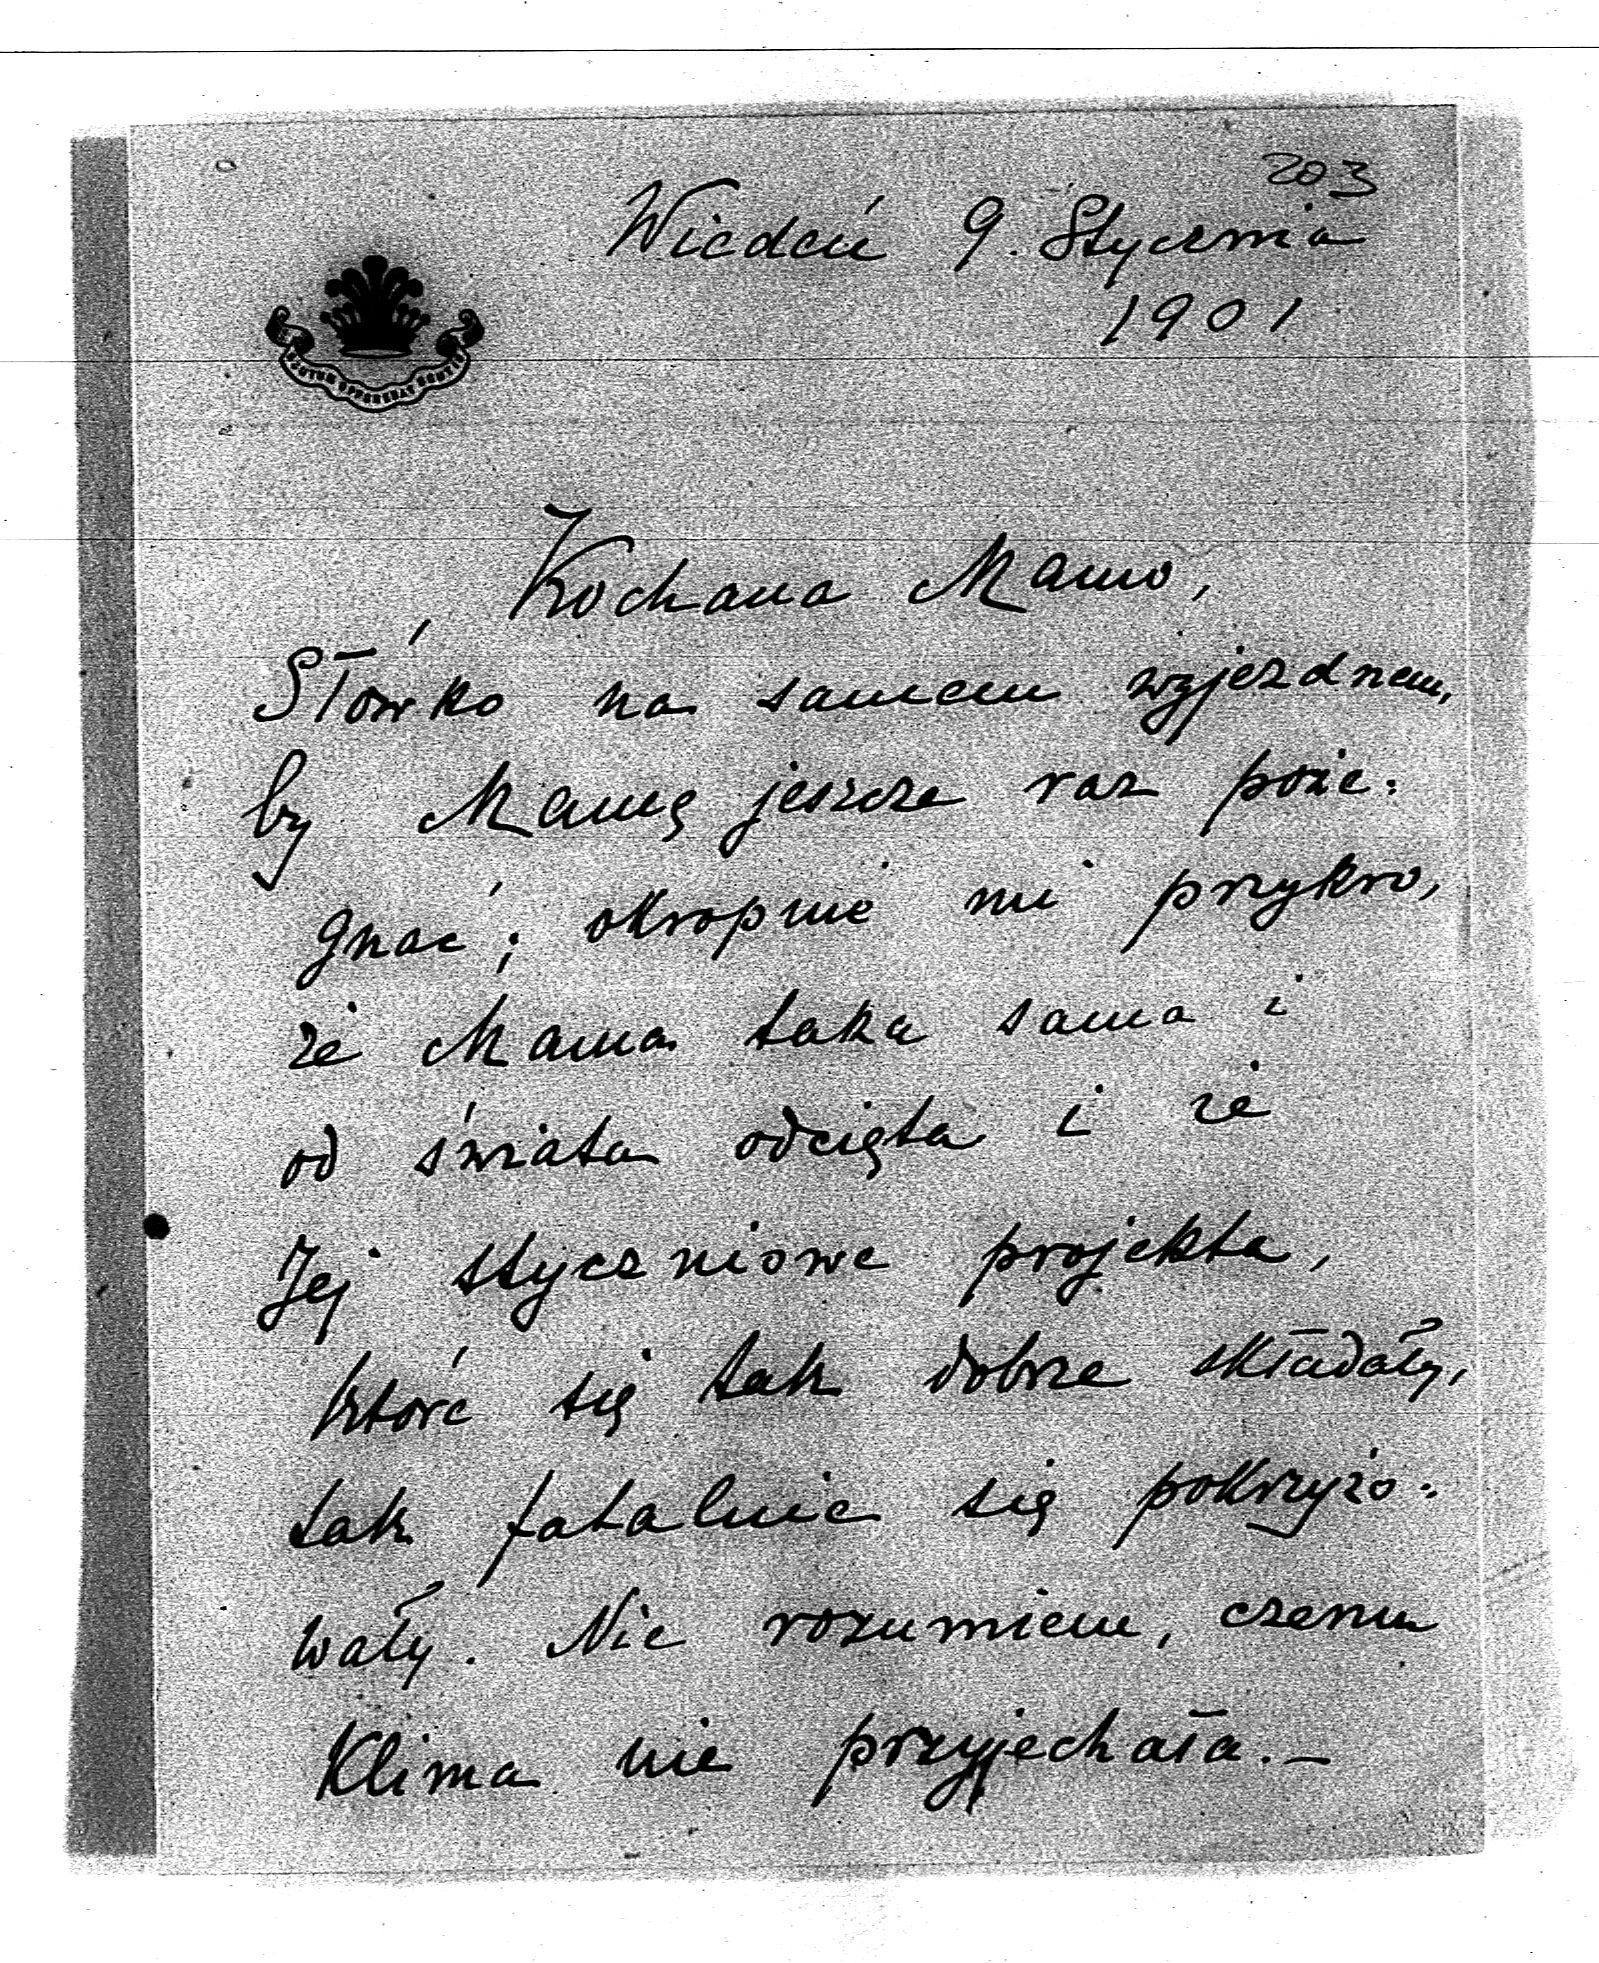 203
Wiedeń 9. Stycznia
1901
SCUTUM OPPONEBAT SCUTIS
Kochana Mamo,
Słówko na samem wyjezdnem,
by Mamę jeszcze raz poże:
gnać; okropnie mi przykro,
że Mama taka sama i
od świata odcięta i że
Jej styczniowe projekta,
które się tak dobrze składały,
tak fatalnie się pokrzyżo:
wały. Nie rozumiem, czemu
Klima nie przyjechała.—